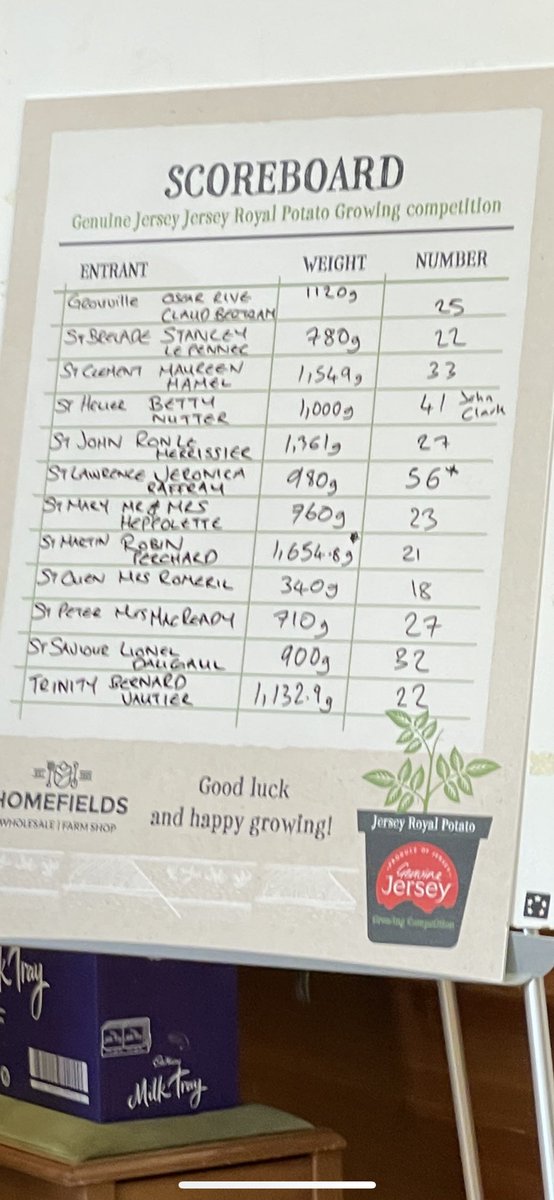 SCOREBOARD
Genuine Jersey Jersey Royal Potato Growing competition
ENTRANT WEIGHT NUMBER
Grouville OSCAR RIVE 1120g 25
CLAUD BERTRAM
ST BRELADE STANLEY 780g 22
LE PENNEC
ST CLEMENT MAUREEN 1,549g 33
HAMEL
ST HELIER BETTY 1,000g 41 John
NUTTER Clark
ST JOHN RON LE 1,361g 27
HERRISSIER
ST LAWRENCE VERONICA 980g 56*
RAFFRAY
ST MARY MR & MRS 760g 23
HEPPOLETTE
ST MARTIN ROBIN 1,654.8g* 21
PERCHARD
ST OUEN MRS ROMERIL 340g 18
ST PETER MRS MACREADY 710g 27
ST SAVIOUR LIONEL 900g 32
TRINITY BERNARD 1,132.9g 22
VAUTIER
HOMEFIELDS
WHOLESALE | FARM SHOP
Good luck
and happy growing!
Jersey Royal Potato
PRODUCE OF JERSEY
Genuine
Jersey
Growing Competition
k Tray
Cadbury
Milk Tray